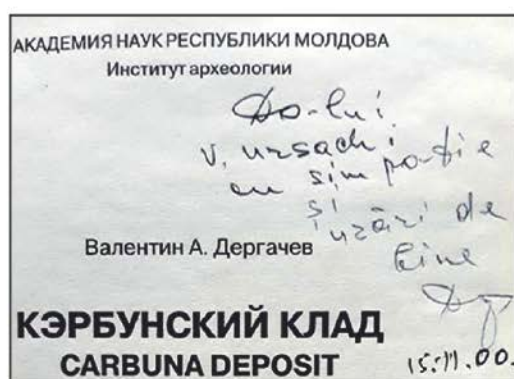 АКАДЕМИЯ НАУК РЕСПУБЛИКИ МОЛДОВА
Институт археологии
Do-lui
V. Ursachi
cu simpatie
și urări de
bine
Валентин А. Дергачев
КЭРБУНСКИЙ КЛАД
CARBUNA DEPOSIT
15.11.00.